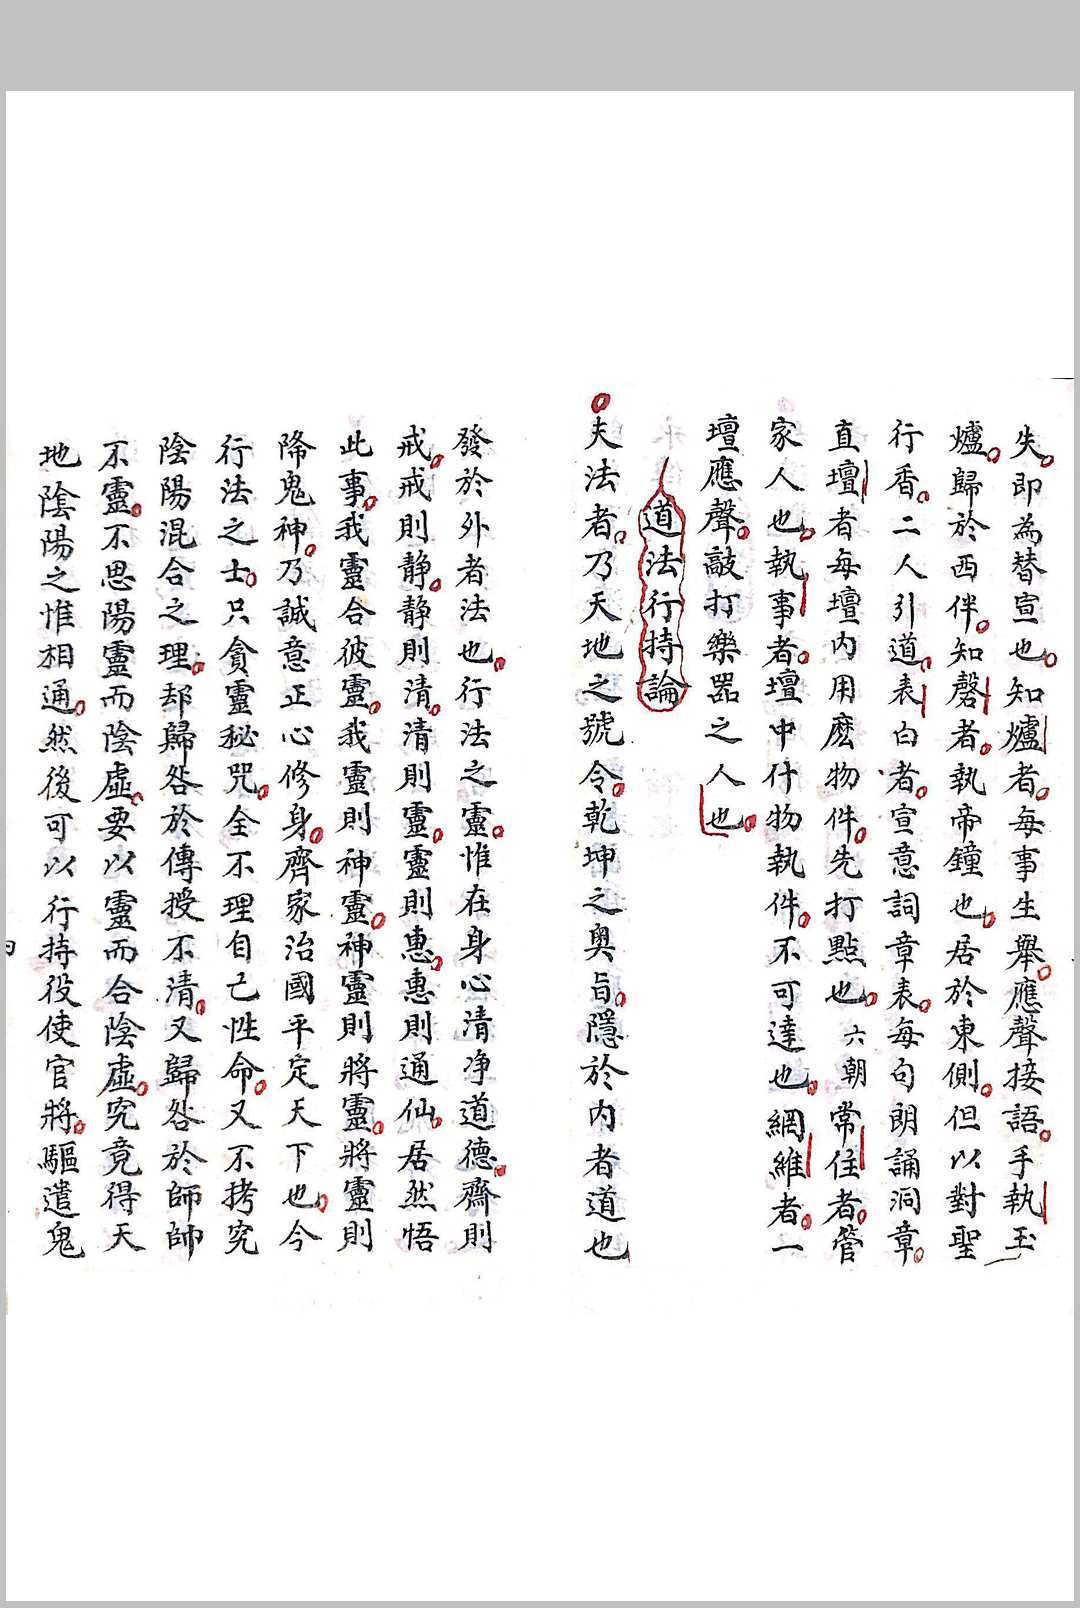 失即為替宣也知爐者每事生舉應聲接語手執玉
爐歸於西伴知磬者執帝鐘也居於東側但以對聖
行香二人引道表白者宣意詞章表每句朗誦洞章
直壇者每壇內用麽物件先打點也六朝常住者管
家人也執事者壇中什物執件不可達也網維者一
壇應聲敲打樂噐之人也
道法行持論
夫法者乃天地之號令乾坤之奥旨隱於内者道也
發於外者法也行法之靈惟在身心清净道德齋則
戒戒則静静則清清則靈靈則惠惠則通仙居然悟
此事我靈合彼靈我靈則神靈神靈則將靈將靈則
降鬼神乃誠意正心修身齊家治國平定天下也今
行法之士只貪靈秘咒全不理自己性命又不拷究
陰陽混合之理却歸咎於傳授不清又歸咎於師師
不靈不思陽靈而陰虛要以靈而合陰虛究竟得天
地陰陽之惟相通然後可以行持役使官將驅遣鬼